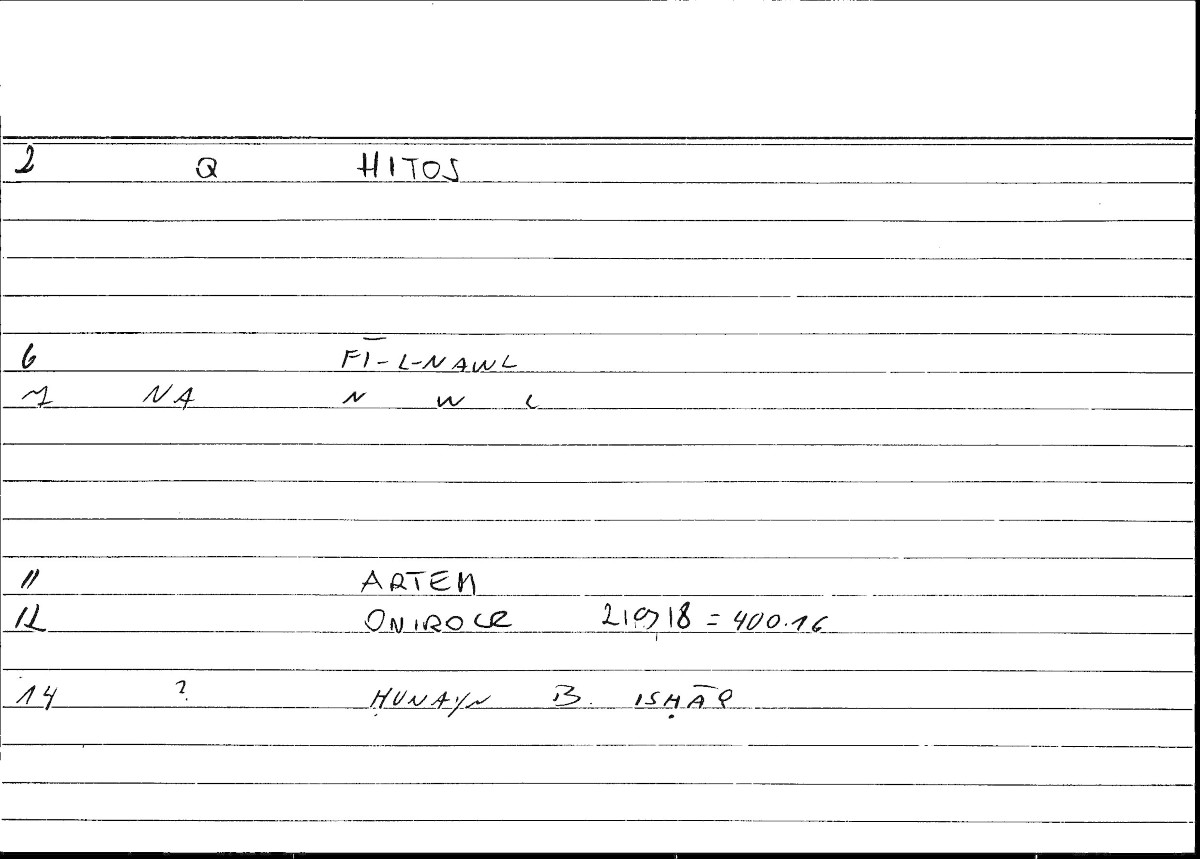 2 Q HITOS
6 FĪ-L-NAWL
7 NA N W L
11 ARTEM
12 ONIROCR 219,18 = 400.16
14 ? ḤUNAYN B. ISḤĀQ